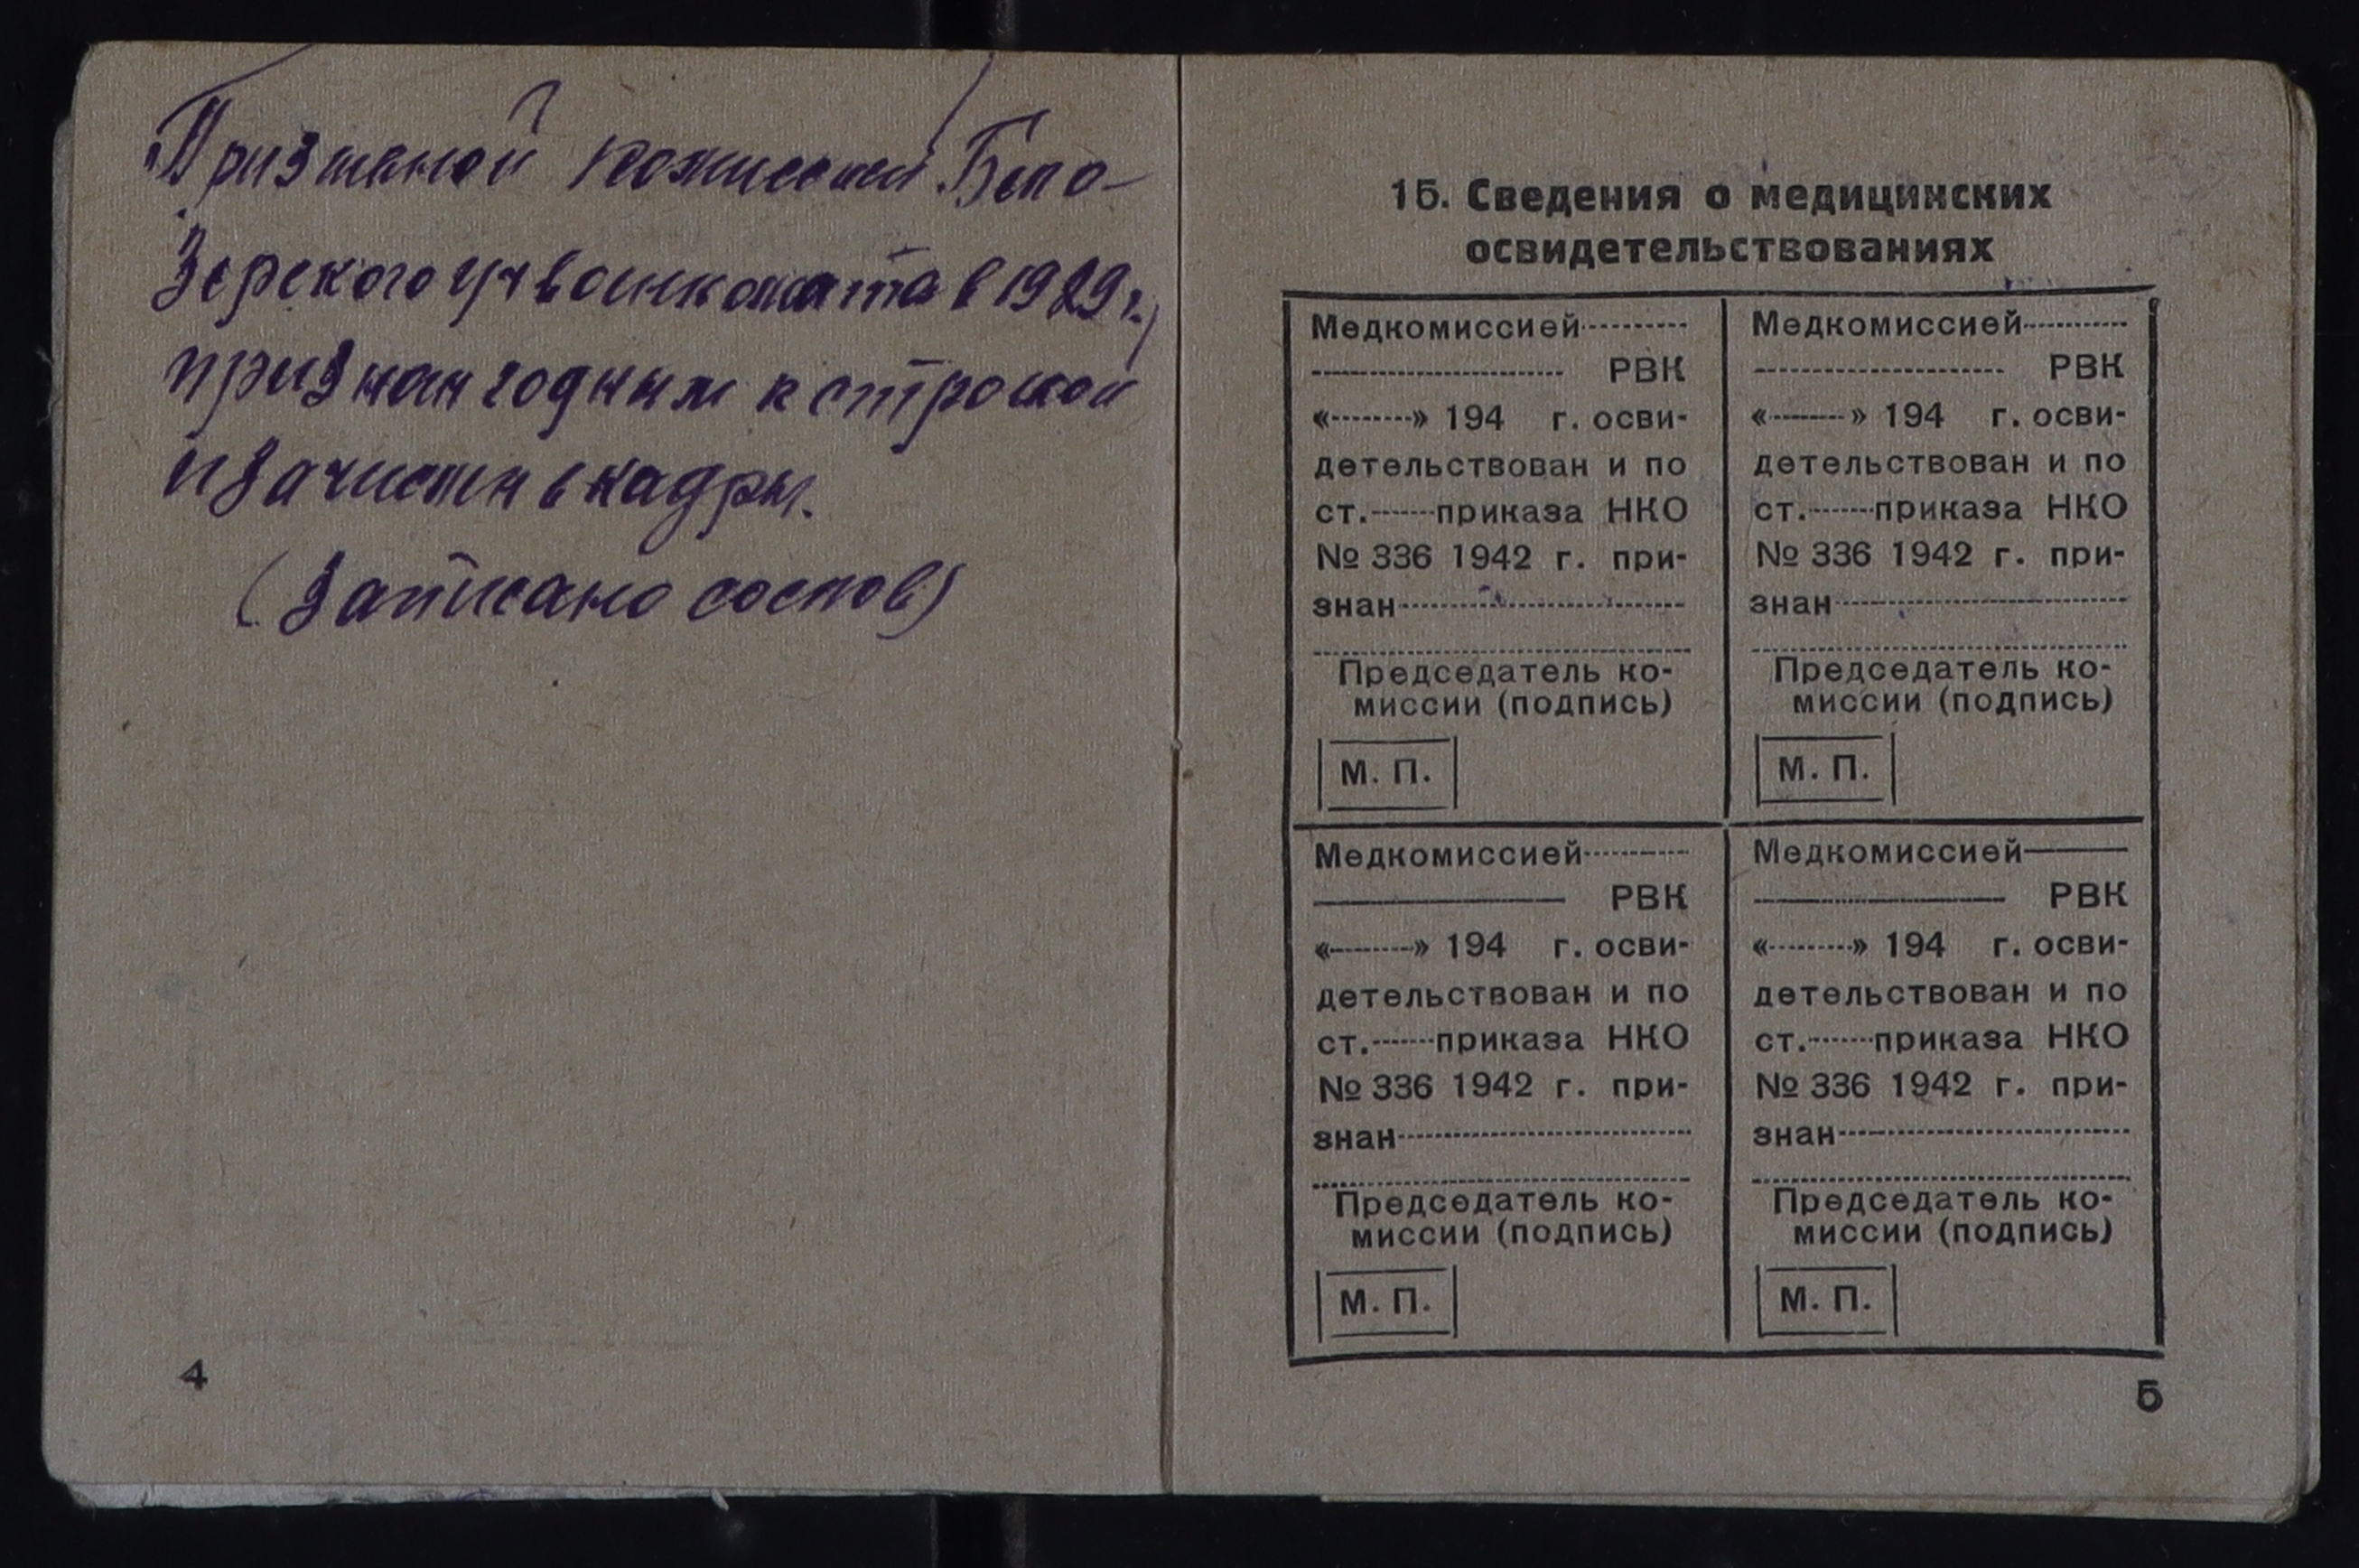 Призывной комиссией Бело-
зерского у/ч военкомата в 1929 г.,
признан годным к строевой
и зачислен в кадры.
(Записано со слов)
4
15. Сведения о медицинских
освидетельствованиях
Медкомиссией
РВК
« » 194 г. осви-
детельствован и по
ст. приказа НКО
№ 336 1942 г. при-
знан
Председатель ко-
миссии (подпись)
М. П.
Медкомиссией
РВК
« » 194 г. осви-
детельствован и по
ст. приказа НКО
№ 336 1942 г. при-
знан
Председатель ко-
миссии (подпись)
М. П.
Медкомиссией
РВК
« » 194 г. осви-
детельствован и по
ст. приказа НКО
№ 336 1942 г. при-
знан
Председатель ко-
миссии (подпись)
М. П.
Медкомиссией
РВК
« » 194 г. осви-
детельствован и по
ст. приказа НКО
№ 336 1942 г. при-
знан
Председатель ко-
миссии (подпись)
М. П.
5